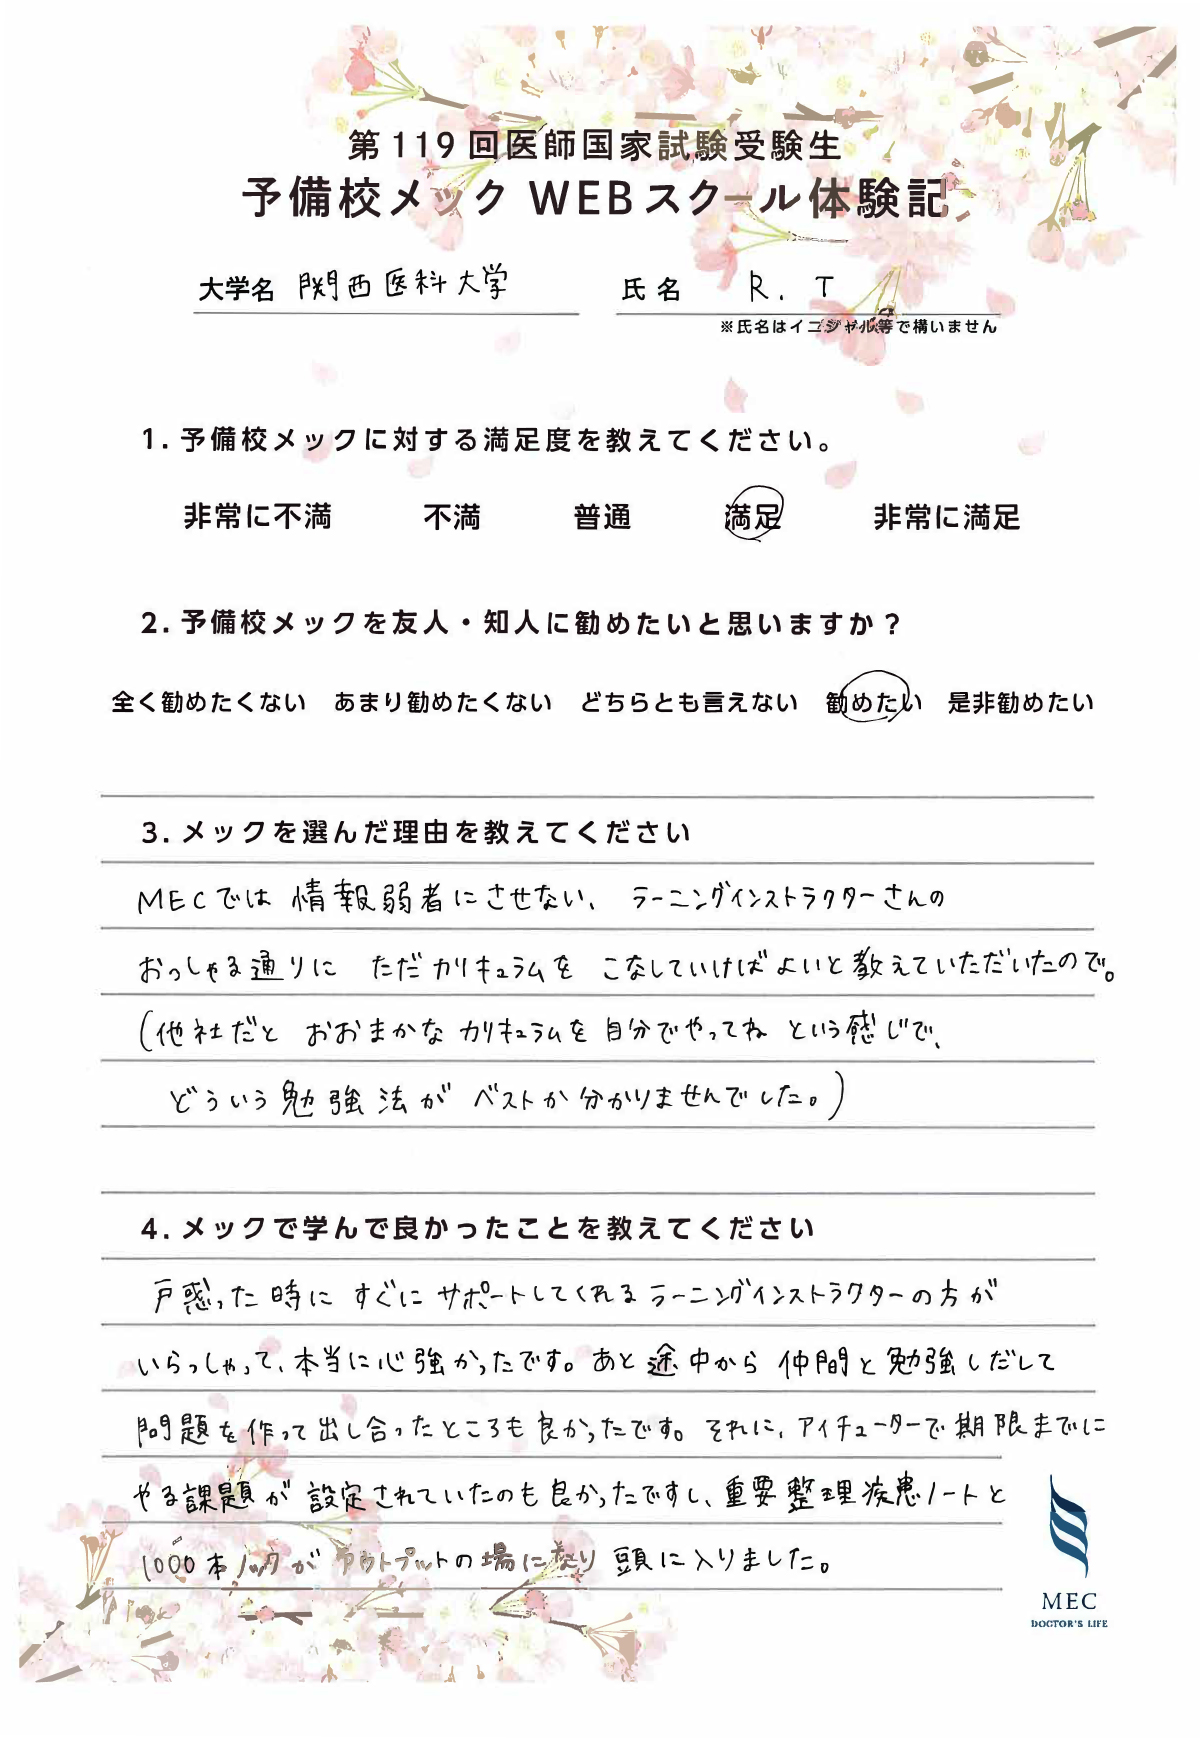 第119回医師国家試験受験生
予備校メックWEBスクール体験記
大学名 関西医科大学 氏名 R. T
※氏名はイニシャル等で構いません
1. 予備校メックに対する満足度を教えてください。
非常に不満 不満 普通 満足 非常に満足
2. 予備校メックを友人・知人に勧めたいと思いますか？
全く勧めたくない あまり勧めたくない どちらとも言えない 勧めたい 是非勧めたい
3. メックを選んだ理由を教えてください
MECでは 情報弱者にさせない、ラーニングインストラクターさんの
おっしゃる通りに ただカリキュラムを こなしていけばよいと教えていただいたので。
(他社だと おおまかな カリキュラムを 自分でやってね という感じで、
どういう勉強法が ベストか分かりませんでした。)
4. メックで学んで良かったことを教えてください
戸惑った時に すぐに サポートしてくれる ラーニングインストラクターの方が
いらっしゃって、本当に心強かったです。あと途中から 仲間と勉強しだして
問題を作って出し合ったところも良かったです。それに、アイチューターで期限までに
やる課題が 設定されていたのも良かったですし、重要整理疾患ノートと
1000本ノックが アウトプットの場になり 頭に入りました。
MEC
DOCTOR'S LIFE